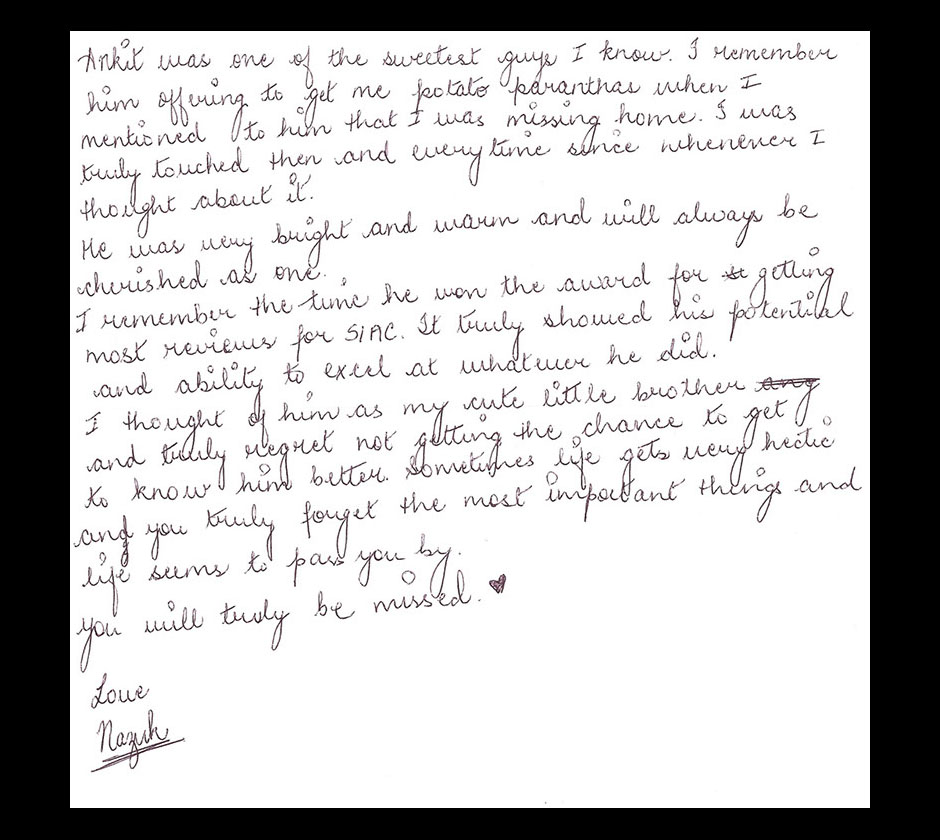 Ankit was one of the sweetest guys I know. I remember
him offering to get me potato paranthas when I
mentioned to him that I was missing home. I was
truly touched then and everytime since whenever I
thought about it.
He was very bright and warm and will always be
cherished as one.
I remember the time he won the award for getting
most reviews for SIAC. It truly showed his potential
and ability to excel at whatever he did.
I thought of him as my cute little brother any
and truly regret not getting the chance to get
to know him better. Sometimes life gets very hectic
and you truly forget the most important things and
life seems to pass you by.
you will truly be missed. ♥
Love
Nazuk